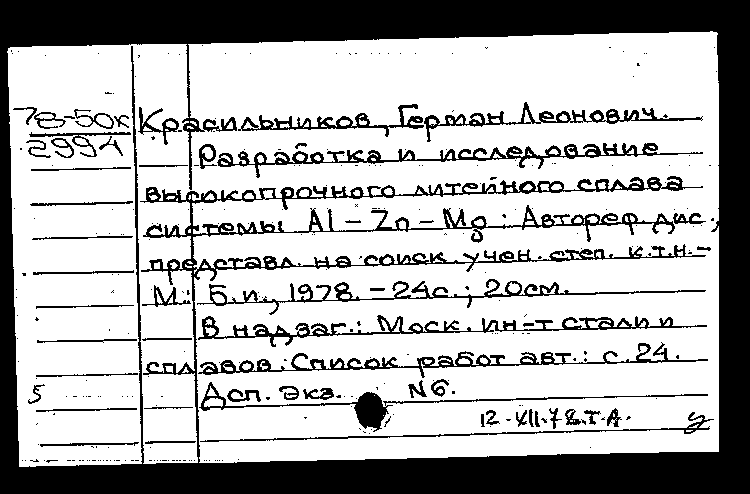 78-50к Красильников, Герман Леонович.
2994 Разработка и исследование
высокопрочного литейного сплава
системы Al – Zn – Mg : Автореф. дис.,
представл. на соиск. учен. степ. к.т.н. –
М.: Б.и., 1978. – 24с.; 20см.
В надзаг.: Моск. ин-т стали и
сплавов. Список работ авт.: с. 24.
5 Дсп. Экз. № 6.
12.XII.78. Т.А.